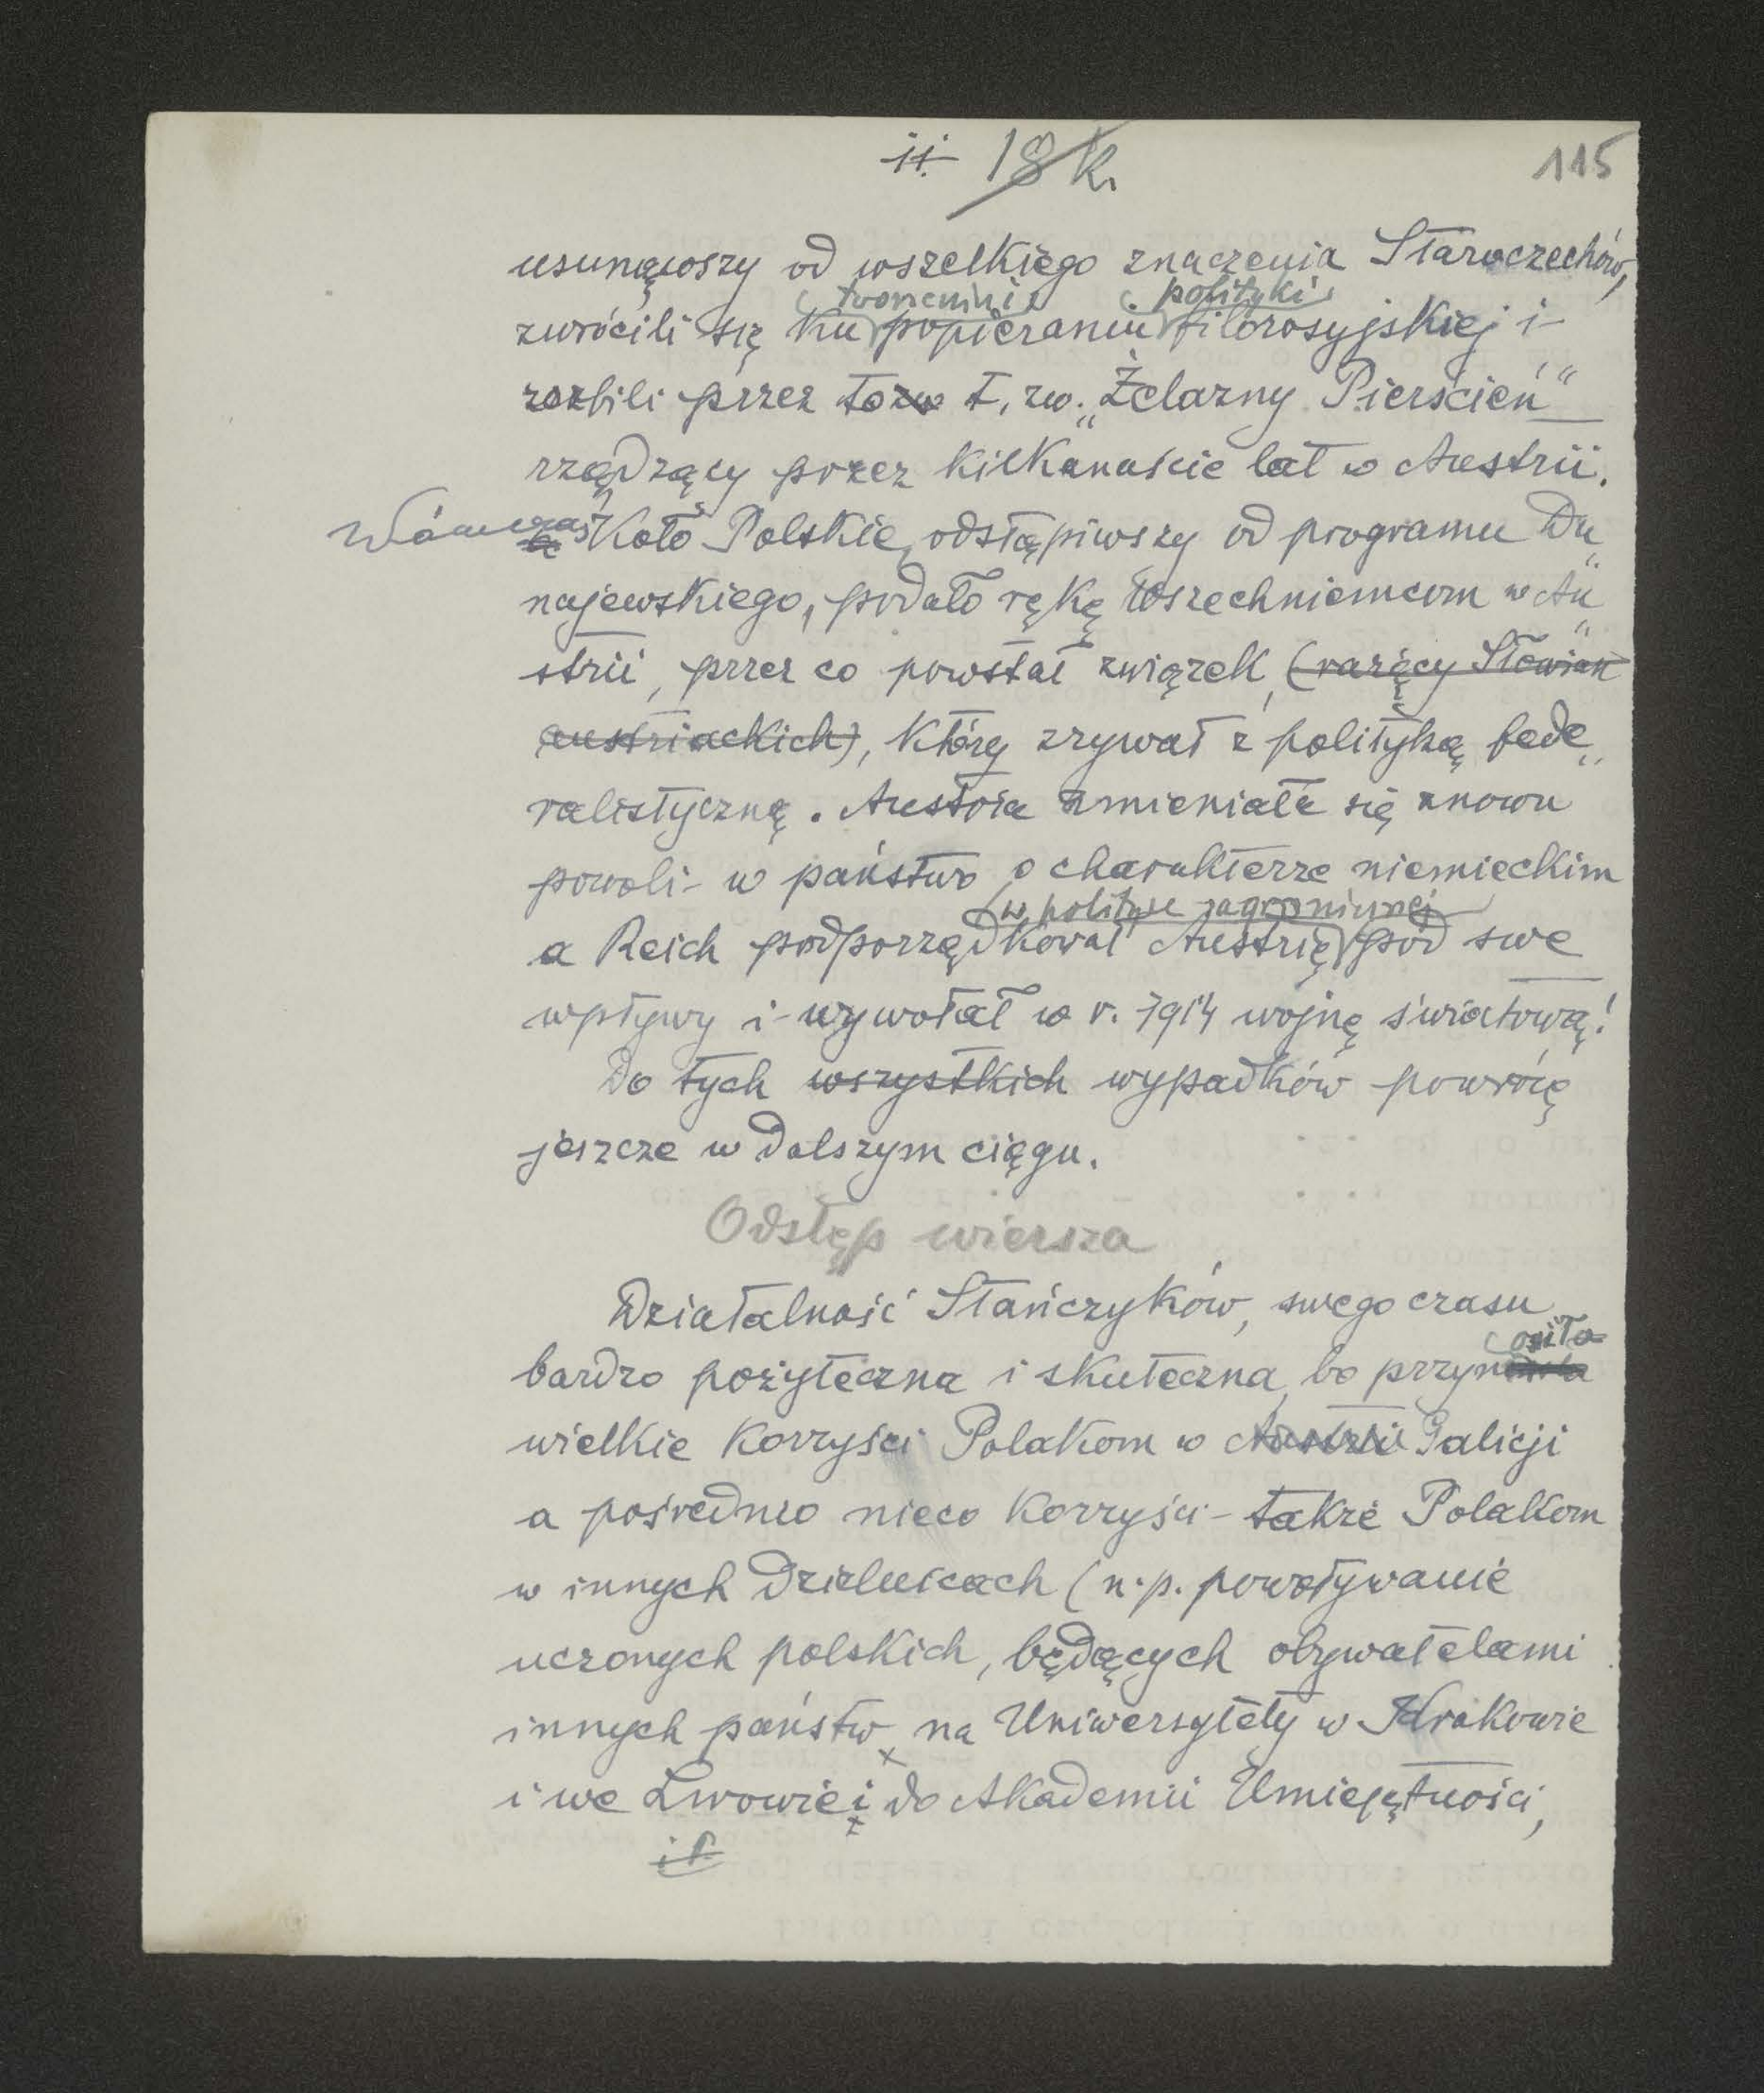 ii 18 k. 115
usunąwszy od wszelkiego znaczenia Staroczechów,
tworzeniu polityki
zwrócili się ku popieraniu filorosyjskiej i
rozbili przez to t. zw. „Żelazny Pierścień”
rządzący przez kilkanaście lat w Austrii.
Wówczas Koło Polskie, odstąpiwszy od programu Du„
najewskiego, podało rękę Wszechniemcom w Au„
strii, przez co powstał związek, (rażący Słowian
austriackich), który zrywał z polityką fede„
ralistyczną. Austria zmieniała się znowu
powoli w państwo o charakterze niemieckim
w polityce zagranicznej
a Reich podporządkował Austrię pod swe
wpływy i wywołał w r. 1914 wojnę światową!
Do tych wszystkich wypadków powrócę
jeszcze w dalszym ciągu.
Odstęp wiersza
Działalność Stańczyków, swego czasu
osiła
bardzo pożyteczna i skuteczna, bo przyn
wielkie korzyści Polakom w Austrii Galicji
a pośrednio nieco korzyści także Polakom
w innych dzielnicach (n.p. powoływanie
uczonych polskich, będących obywatelami
innych państw, na Uniwersytety w Krakowie
i we Lwowie i do Akademii Umiejętności,